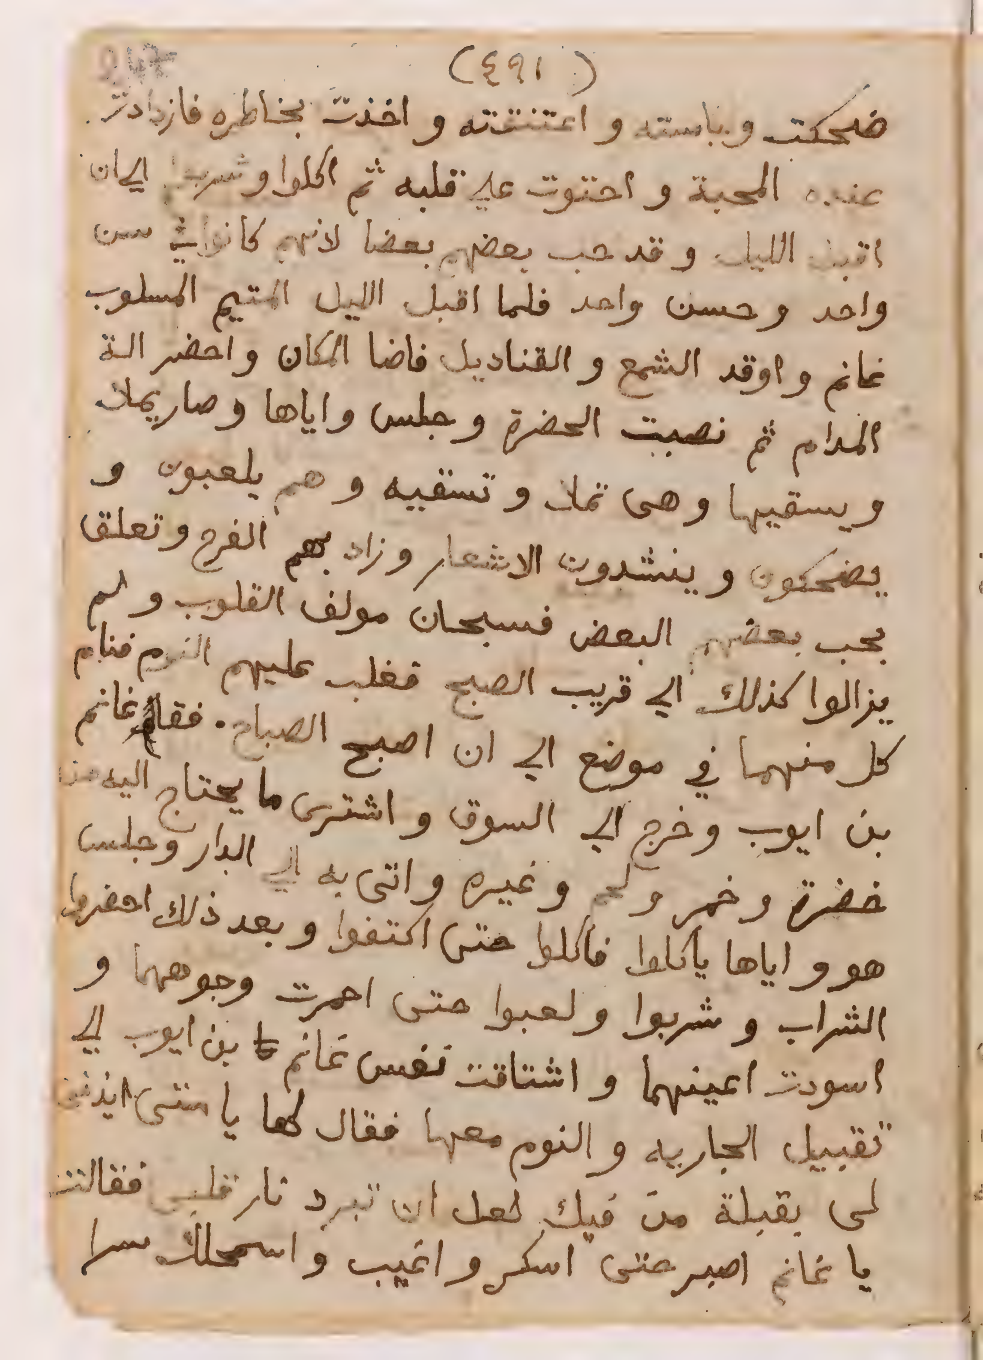 247
(٤٩١)
ضحكت وباسته و اعتنقته و اخذت بخاطره فازدادت
عنده المحبة و احتوت علي قلبه ثم اكلوا وشربوا الي ان
اقبل الليل وقد حب بعضهم بعضا لانهم كانوا في سن
واحد وحسن واحد فلما اقبل الليل المتيم المسلوب
غانم و اوقد الشمع و القناديل فاضا المكان و احضر الة
المدام ثم نصبت الحضرة و جلس و اياها و صار يملا
و يسقيها و هى تملا و تسقيه و هم يلعبون و
يضحكون و ينشدون الاشعار و زاد بهم الفرح و تعلق
بحب بعضهم البعض فسبحان مولف القلوب و لم
يزالوا كذلك الي قريب الصبح فغلب عليهم النوم فنام
كل منهما في موضع الي ان اصبح الصباح. فقام غانم
بن ايوب و خرج الي السوق و اشترى ما يحتاج اليه من
خضرة و خمر و لحم و غيره و اتى به الي الدار و جلس
هو و اياها يأكلوا فأكلوا حتى اكتفوا و بعد ذلك احضروا
الشراب و شربوا و لعبوا حتى احمرت وجوههما و
اسودت اعينهما و اشتاقت نفس غانم بن ايوب الي
تقبيل الجاريه و النوم معها فقال لها يا ستى ايذنى
لى بقبلة من فيك لعل ان تبرد نار قلبى فقالت
يا غانم اصبر حتى اسكر و اغيب و اسمحلك سرا